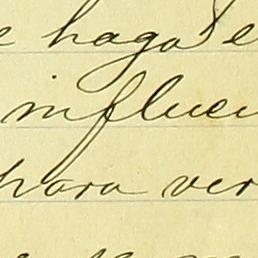 e haga s e
influen
para ver